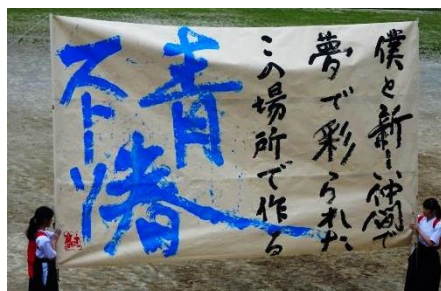 僕と新しい仲間で
夢で彩られた
この場所で作る
青春
ストーリー